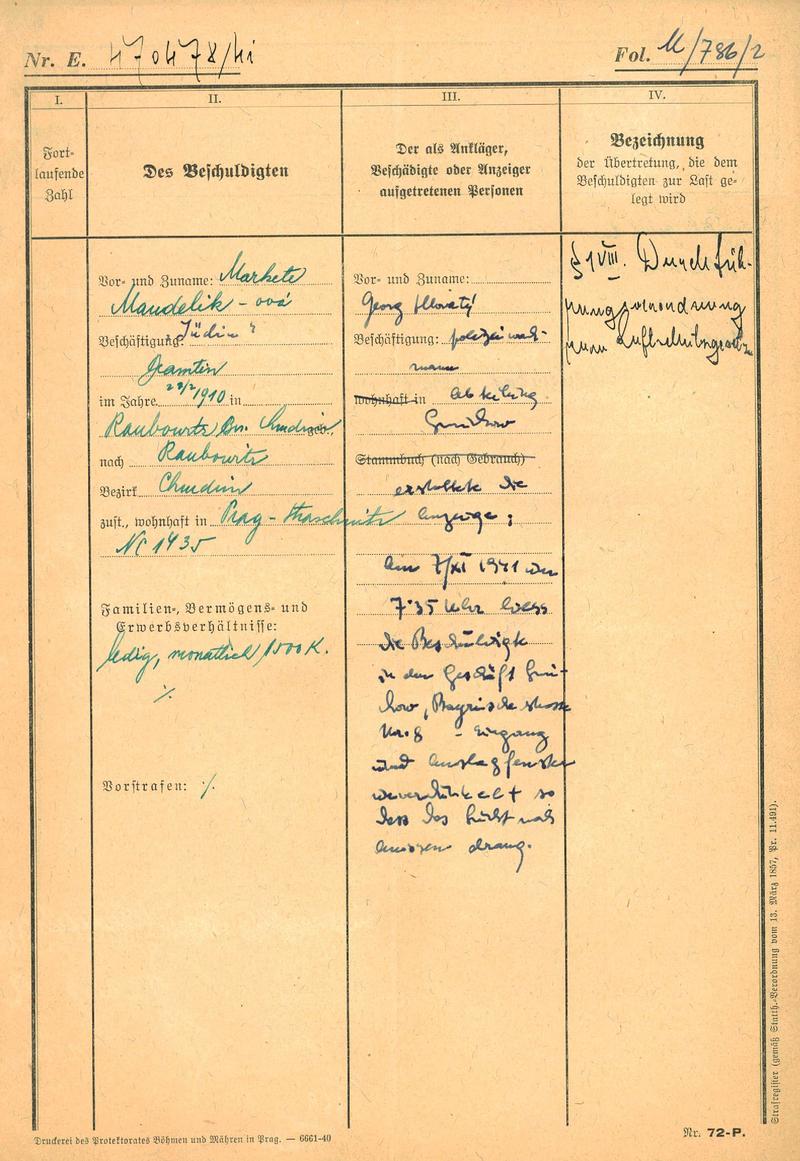 Nr. E. 470478/41
Fol. M/786/2
I.
II.
III.
IV.
Fort-
laufende
Zahl
Des Beschuldigten
Der als Ankläger,
Beschädigte oder Anzeiger
aufgetretenen Personen
Bezeichnung
der Übertretung, die dem
Beschuldigten zur Last ge-
legt wird
Vor- und Zuname: Markete
Mandelik-ová
Beschäftigung: Jüdin
Beamtin
im Jahre 1910 in
Raubowitz Bez. Chrudim geb.,
nach Raubowitz
Bezirk Chrudim
zust., wohnhaft in Prag - Straschnitz
Nc 1435
Familien-, Vermögens- und
Erwerbsverhältnisse:
ledig, monatlich 1500 K.
./.
Vorstrafen: ./.
Vor- und Zuname:
Georg
Beschäftigung: polizeiwach-
mann
wohnhaft in Abteilung
Stammbuch (nach Gebrauch)
erstattete die
Anzeige:
Am 7/XI 1941 um
7·35 Uhr liess
die Beschuldigte
in dem Geschäft
Bayrische strasse
Nr. 8 - Eingang
und Auslagfenster
unverdunkelt so
dass das Licht nach
aussen drang.
§ 1 VIII. Durchfüh-
rungsverordnung
zum Luftschutzgesetz
Strafregister (gemäß Statth.-Verordnung vom 13. März 1857, Nr. 11.491).
Druckerei des Protektorates Böhmen und Mähren in Prag. — 6661-40
Nr. 72-P.